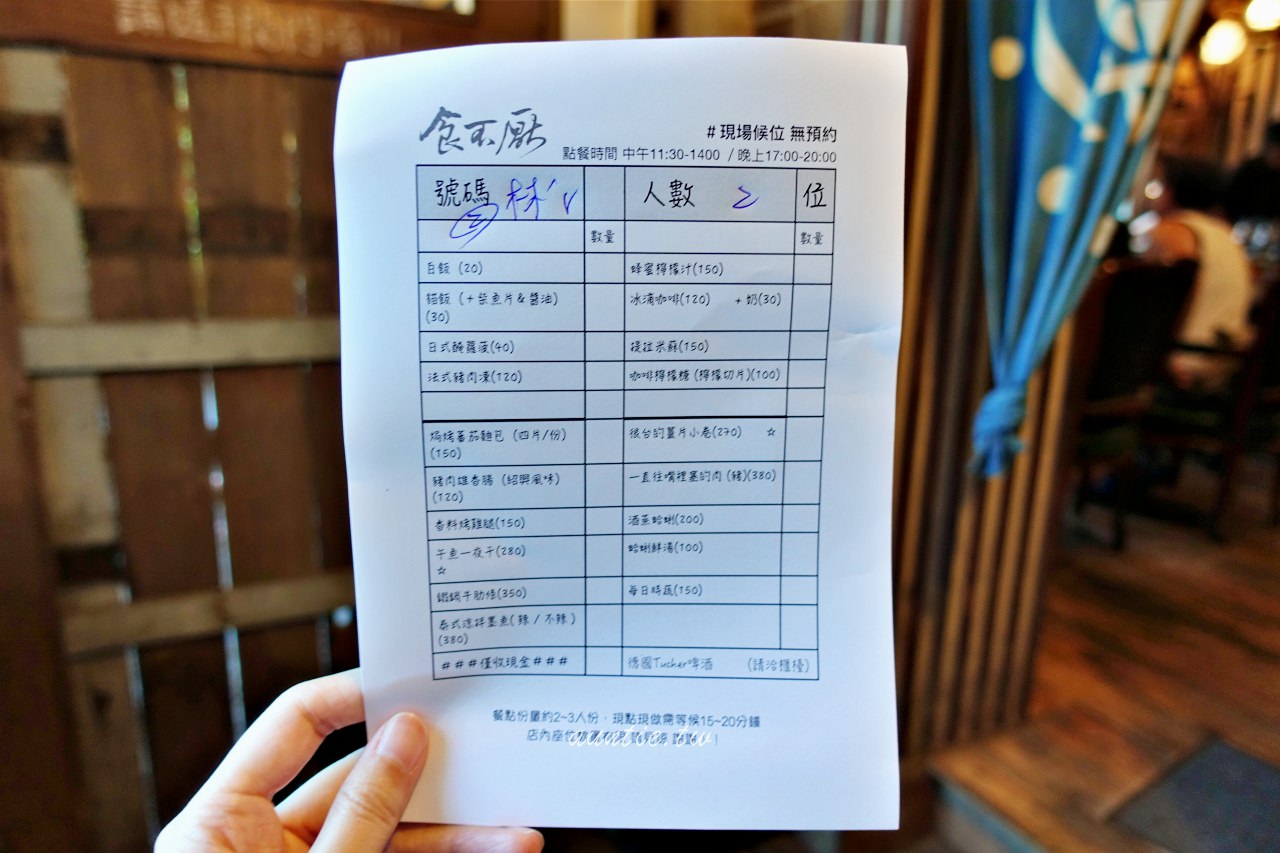 食不厭
#現場候位 無預約
點餐時間 中午11:30-1400 / 晚上17:00-20:00
號碼 ② 林' v 人數 2 位
數量 數量
白飯 (20) 蜂蜜檸檬汁(150)
貓飯 (+柴魚片&醬油) 冰滴咖啡(120) +奶(30)
(30)
日式醃蘿菠(40) 提拉米蘇(150)
法式豬肉凍(120) 咖啡檸檬糖 (檸檬切片)(100)
焗烤蕃茄麵包 (四片/份) 很台的薑片小卷(270) ☆
(150)
豬肉雄香腸 (紹興風味) 一直往嘴裡塞的肉 (豬)(380)
(120)
香料烤雞腿(150) 酒蒸蛤蜊(200)
午魚一夜干(280) 蛤蜊鮮湯(100)
☆
鐵鍋牛肋條(350) 每日時蔬(150)
泰式涼拌墨魚(辣 / 不辣)
(380)
###僅收現金### 德國Tucher啤酒 (請洽櫃檯)
餐點份量約2~3人份,現點現做需等候15~20分鐘
店內座位數